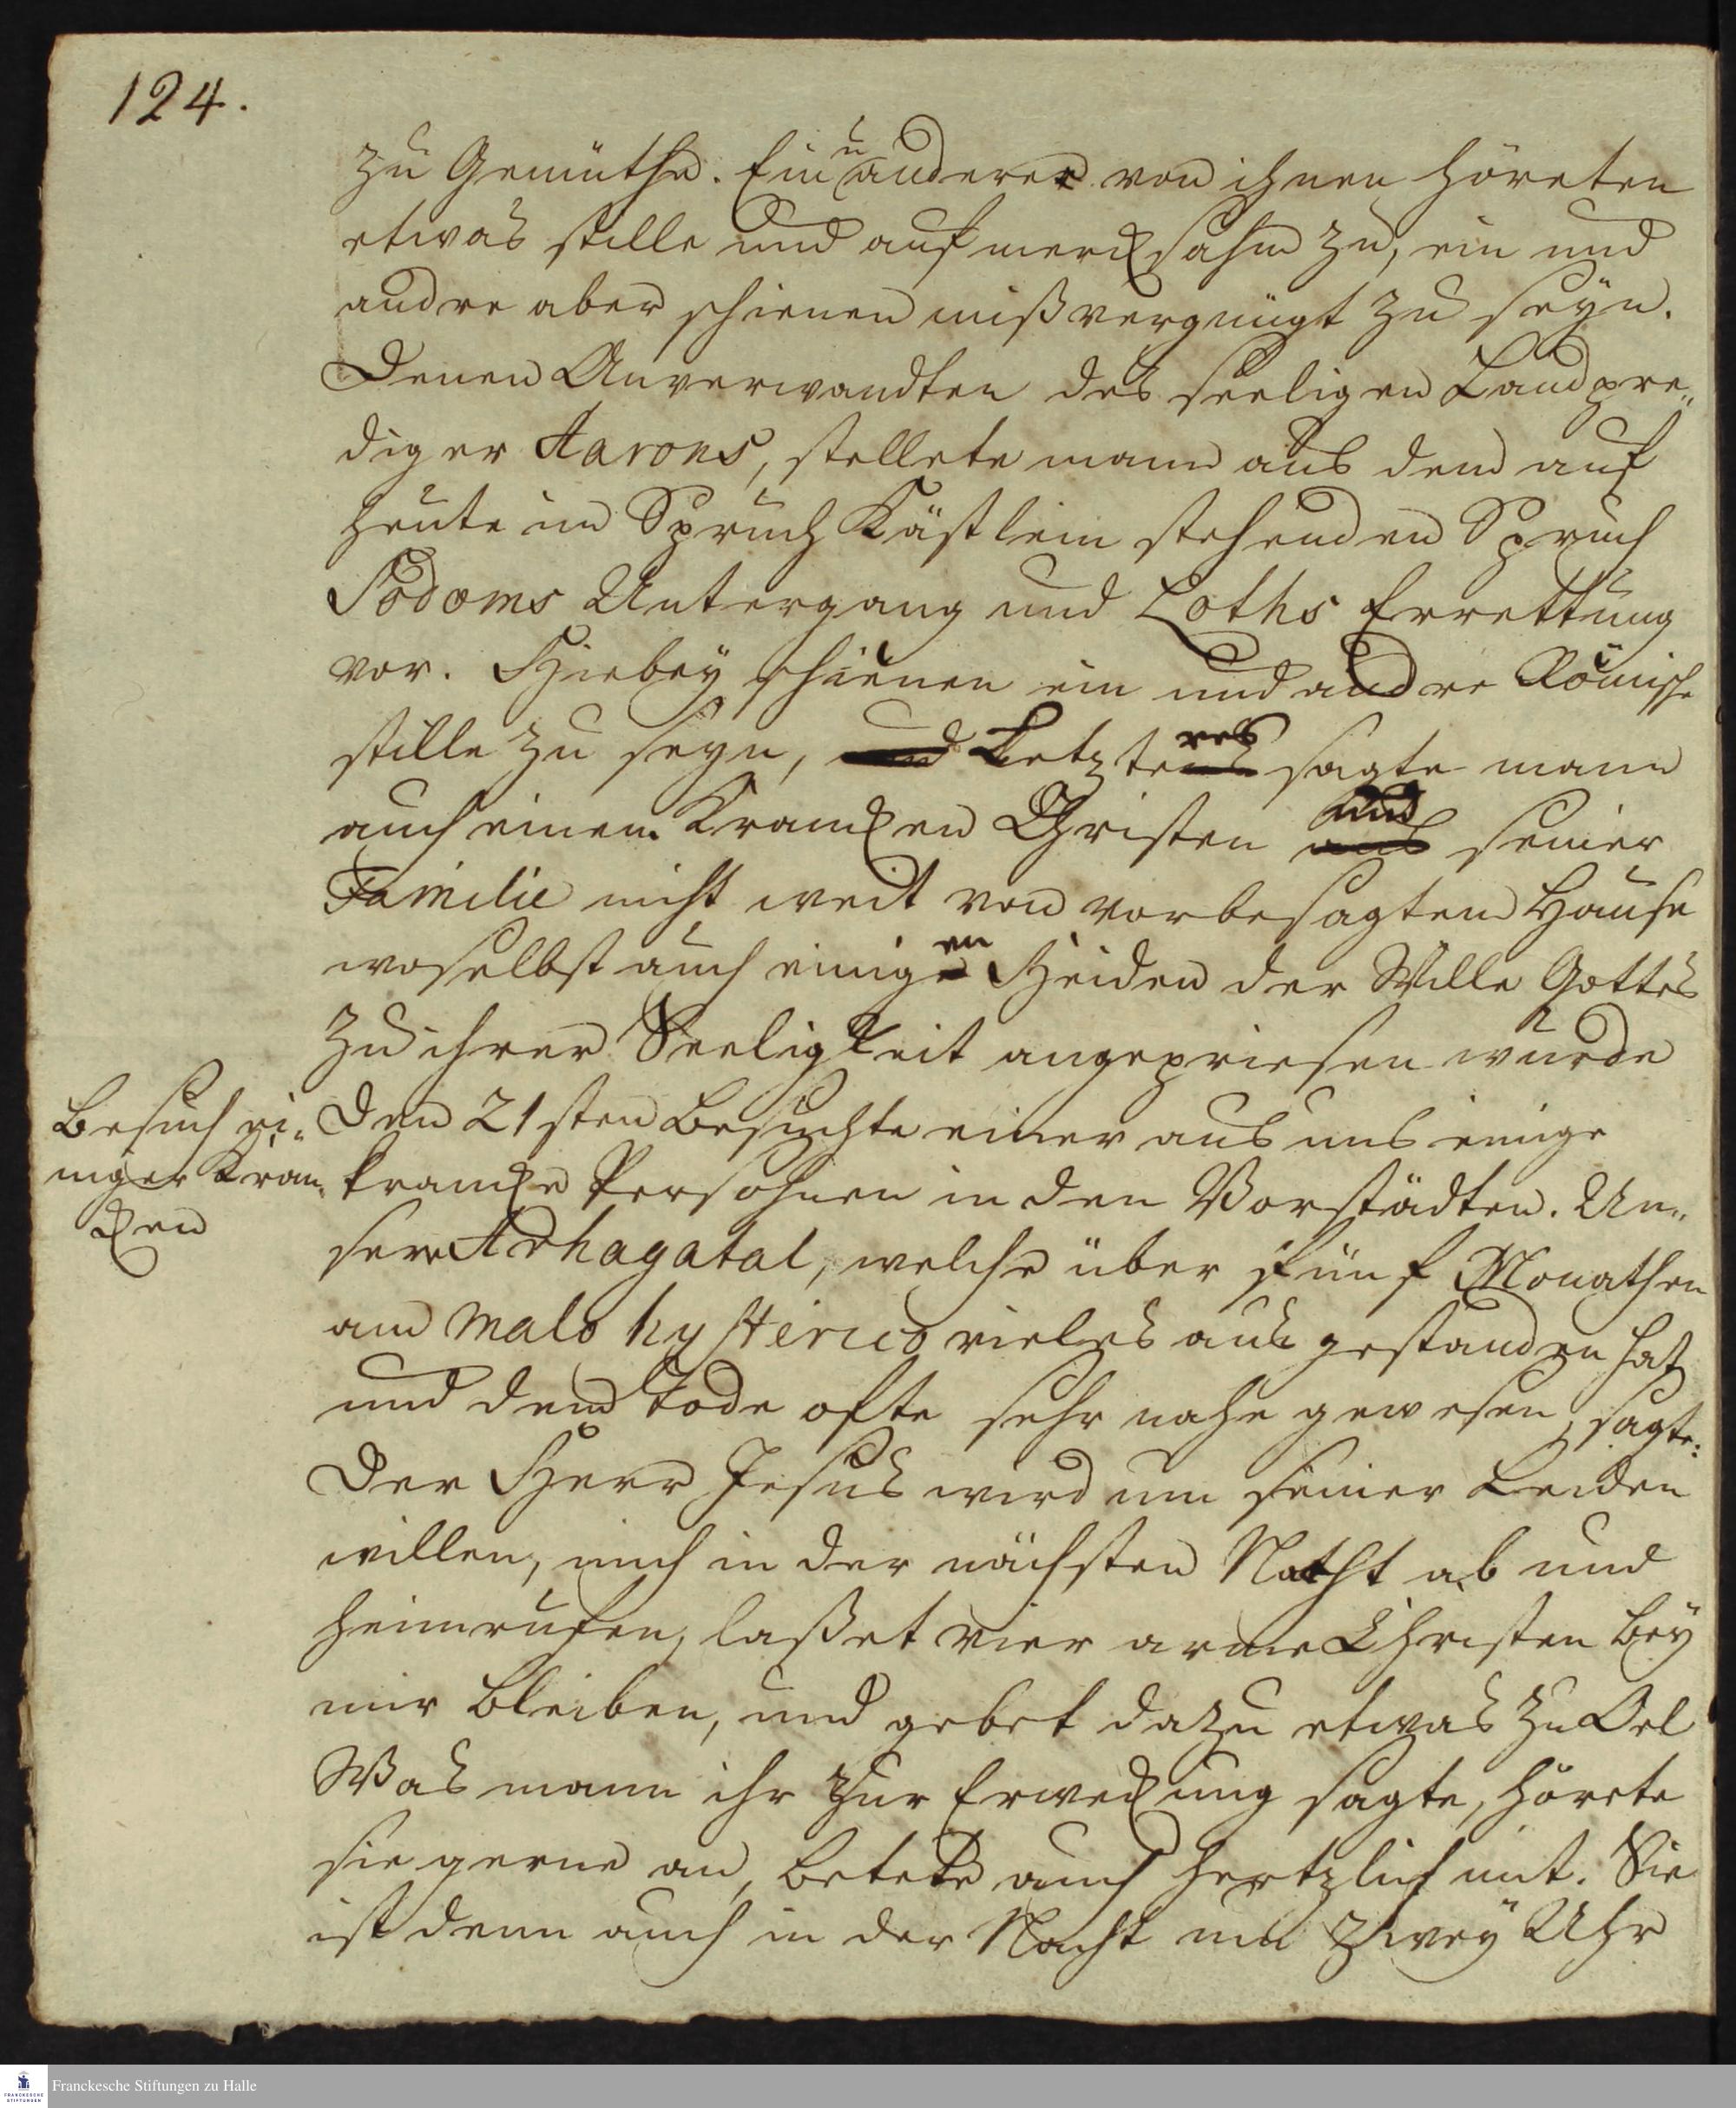 124.
zu Gemüthe. Ein u anderer von ihnen höreten
etwas stille und aufmercksahm zu, ein und
andre aber schienen mißvergnügt zu seyn.
Denen Anverwandten des seeligen Landpre„
diger Aarons, stellete mann aus dem auf
heute im Spruch Kästlein stehenden Spruch
Sodoms Untergang und Loths Errettung
vor. Hiebey schienen ein und andre Römische
stille zu seyn, und Letzteres sagte mann
auch einem Krancken Christen und seiner
Familie nicht weit von vorbesagtem Hause
woselbst auch einigen Heiden der Wille Gottes
zu ihrer Seeligkeit angepriesen wurde
Besuch ei„
niger Kran„
cken
Den 21sten besuchte einer aus uns einige
krancke Persohnen in den Vorstädten. Un„
sere Arhagatal, welche über fünf Monathen
am malo hysterico vieles ausgestanden hat
und dem Tode ofte sehr nahe gewesen, sagte:
Der Herr Jesus wird um seiner Leiden
willen, mich in der nächsten Nacht ab und
heimrufen, laßet vier arme Christen bey
mir bleiben, und gebet dazu etwas zu Oel
Was mann ihr zur Erweckung sagte, hörete
sie gerne an, betete auch hertzlich mit. Sie
ist denn auch in der Nacht um zwey Uhr
Franckesche Stiftungen zu Halle
FRANCKESCHE
STIFTUNGEN